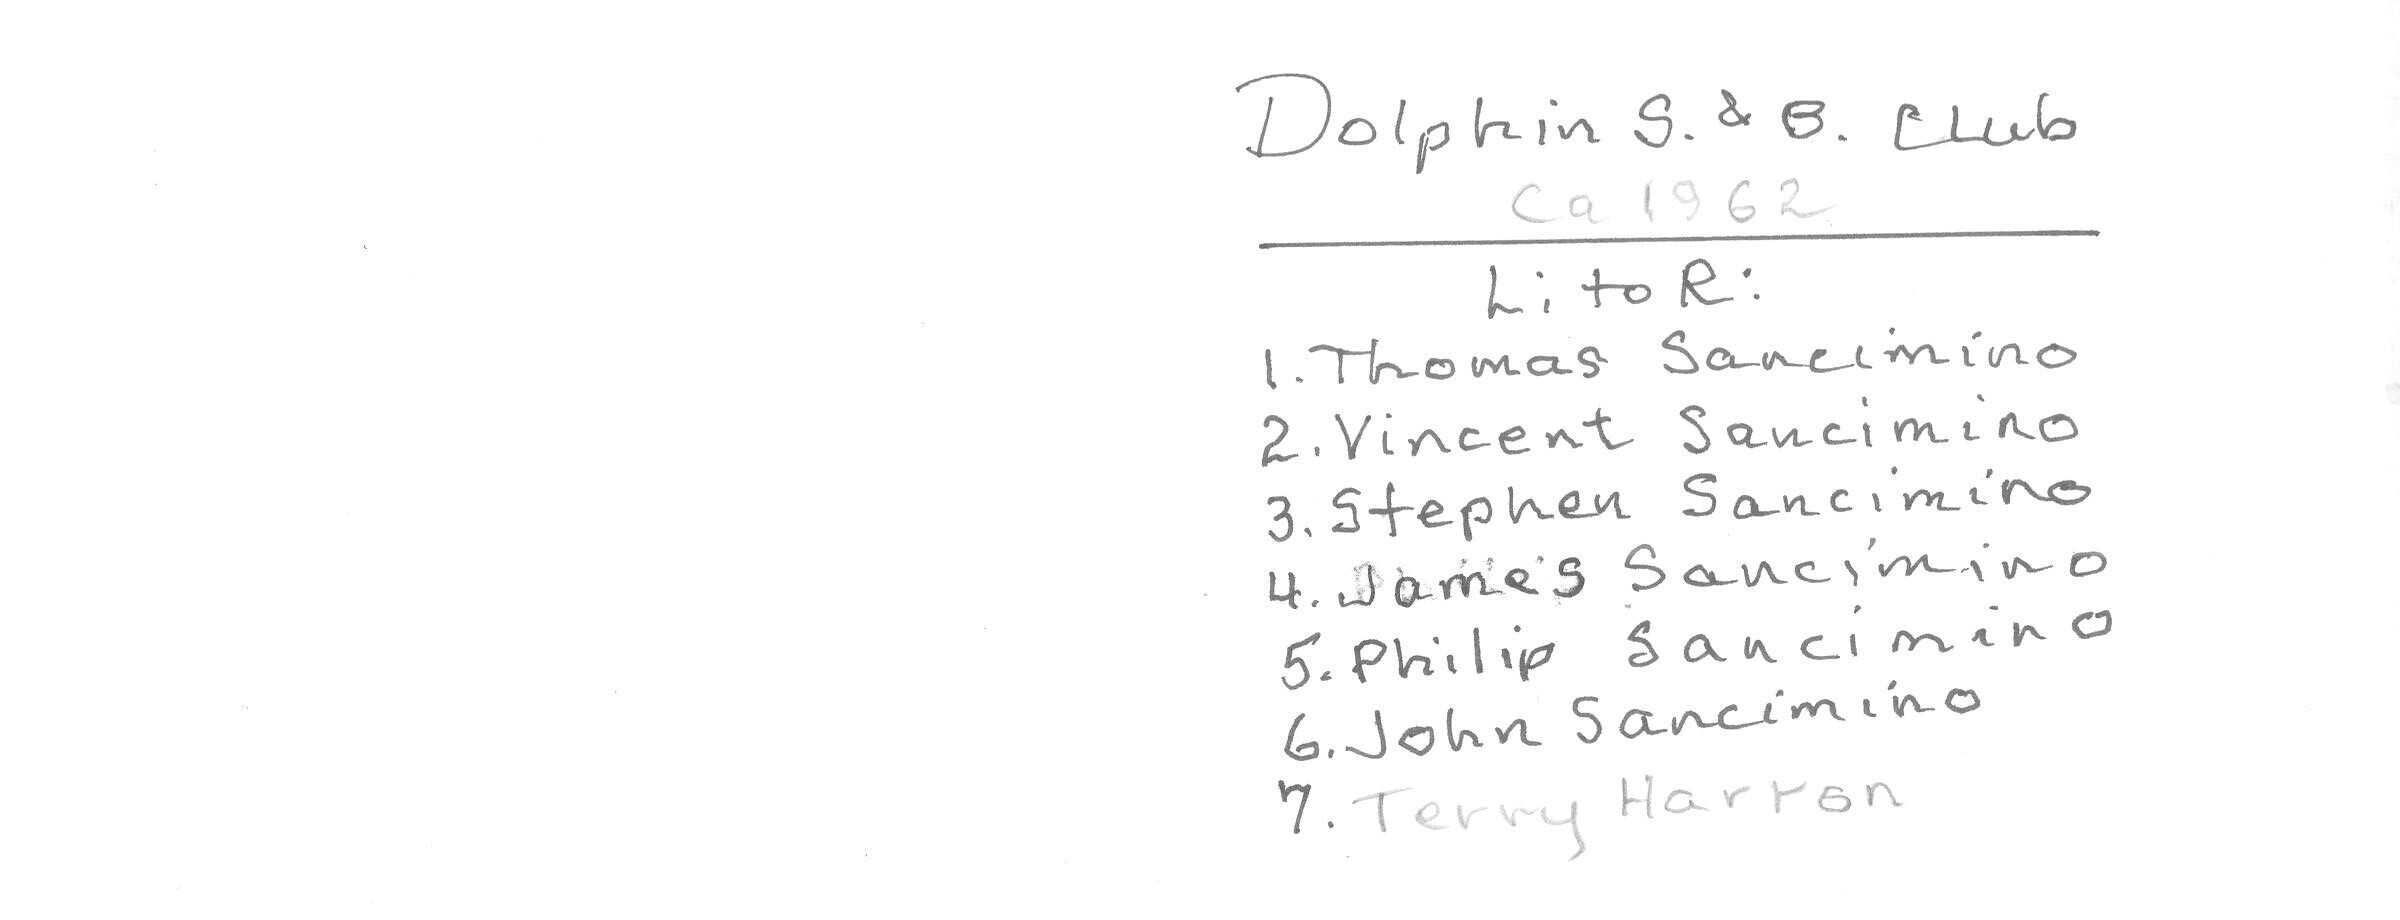 Dolphin S. & B. Club
Ca 1962
L; to R:
1. Thomas Sancimino
2. Vincent Sancimino
3. Stephen Sancimino
4. James Sancimino
5. Philip Sancimino
6. John Sancimino
7. Terry Harron